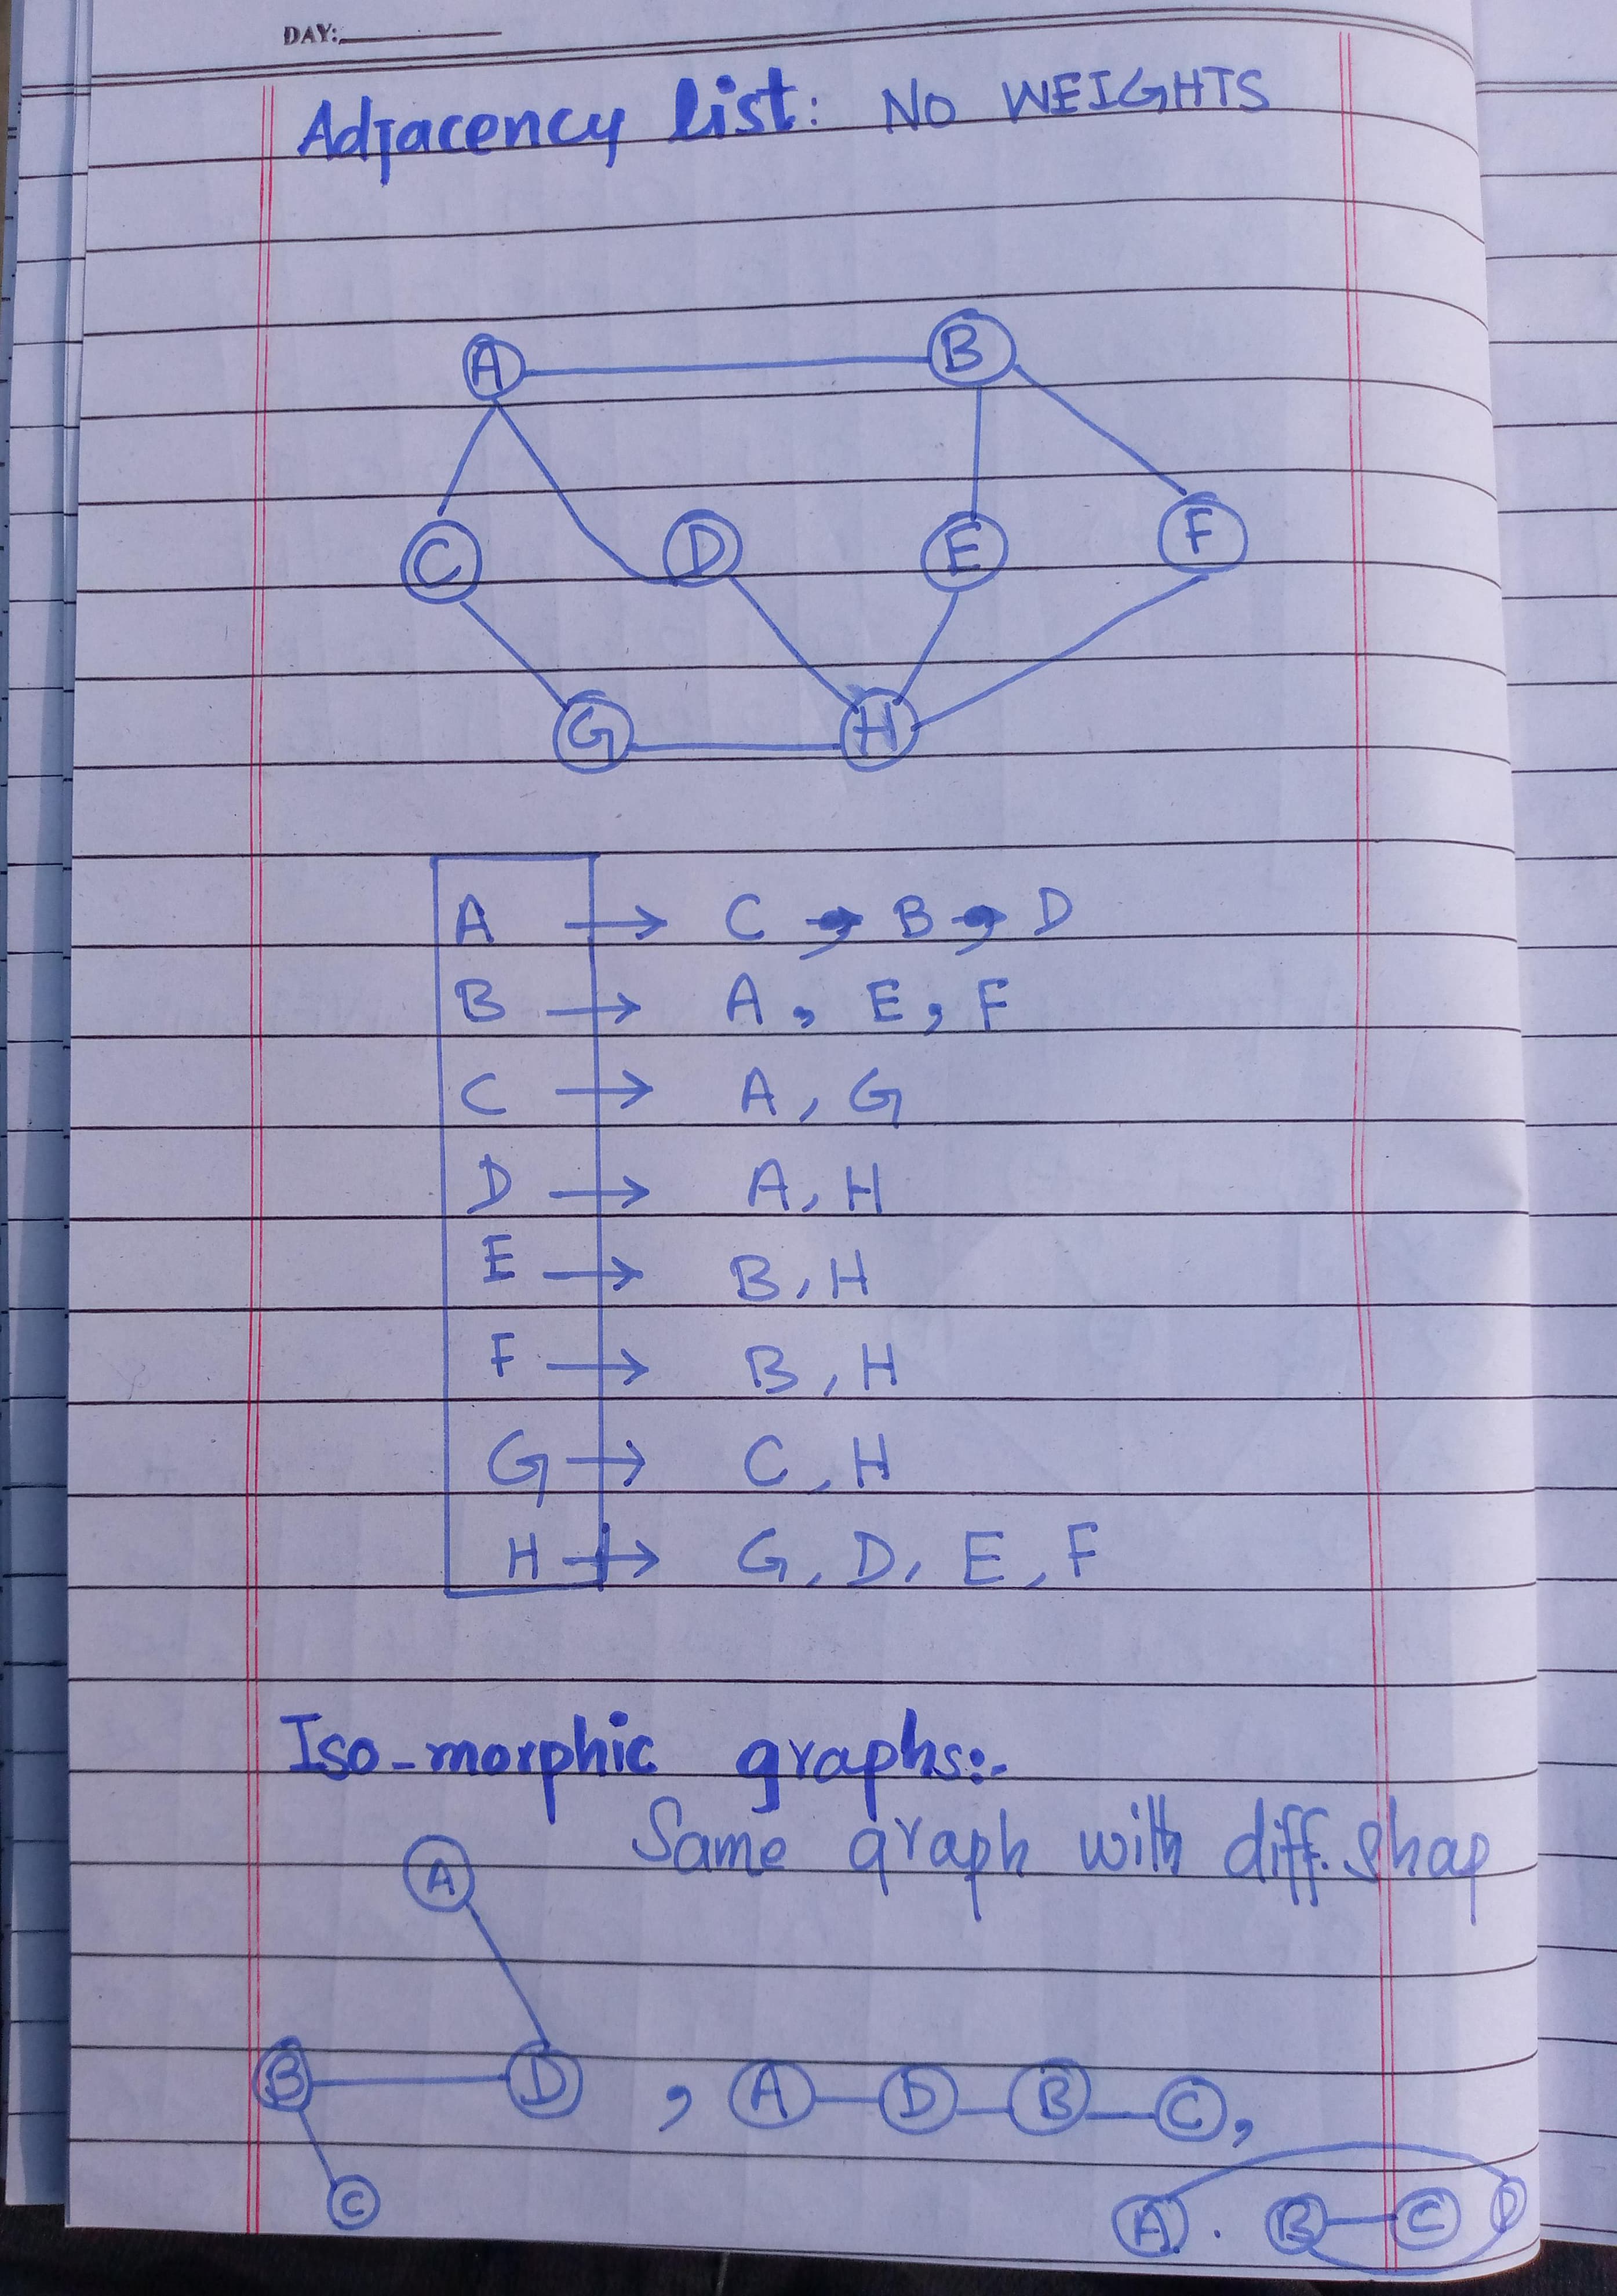 DAY:
Adjacency list: NO WEIGHTS
A B
C D E F
G H
A → C , B , D
B → A , E , F
C → A , G
D → A , H
E → B , H
F → B , H
G → C , H
H → G , D , E , F
Iso-morphic graphs:-
Same graph with diff. shap
A
B D , A D B C ,
C
A . B C D